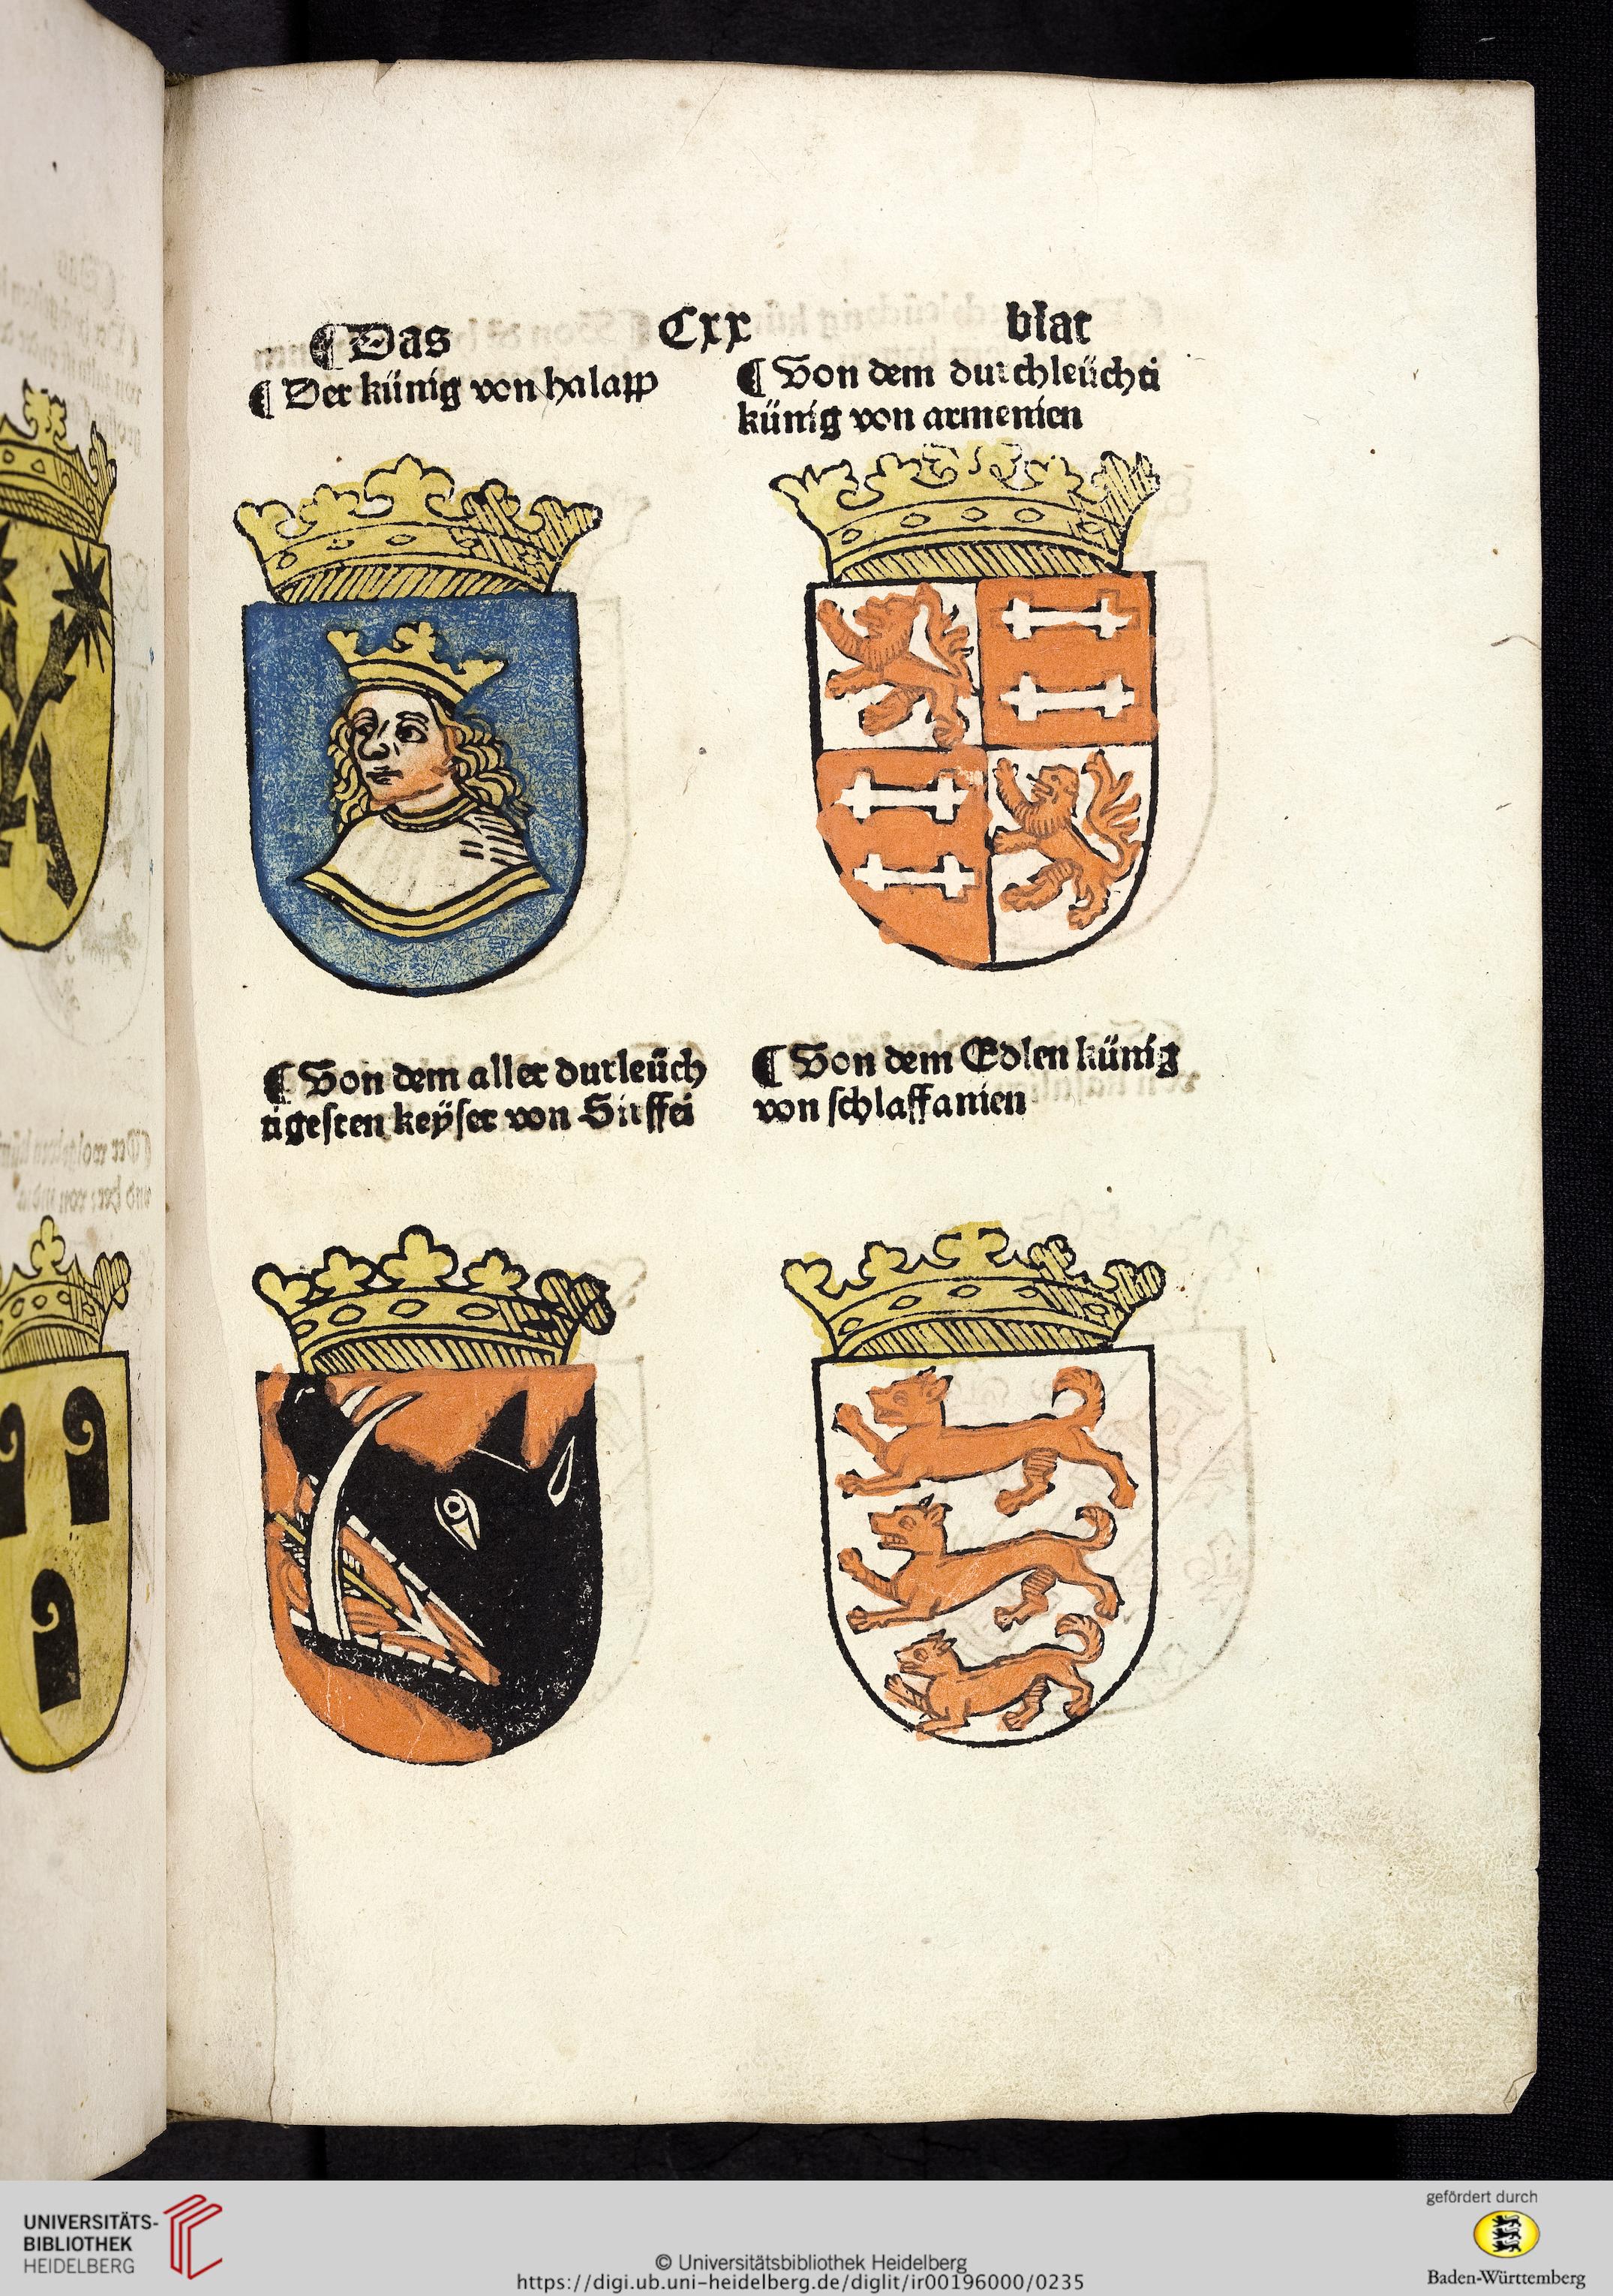 ¶ Das Cxx blat
¶ Der künig von halapp
¶ Von dem durchleüchti
künig von armenien
¶ Von dem aller durleüch
tigesten keÿser von Siffei
¶ Von dem Edlen künig
von schlaffanien
UNIVERSITÄTS-
BIBLIOTHEK
HEIDELBERG
© Universitätsbibliothek Heidelberg
https://digi.ub.uni-heidelberg.de/diglit/ir00196000/0235
gefördert durch
Baden-Württemberg